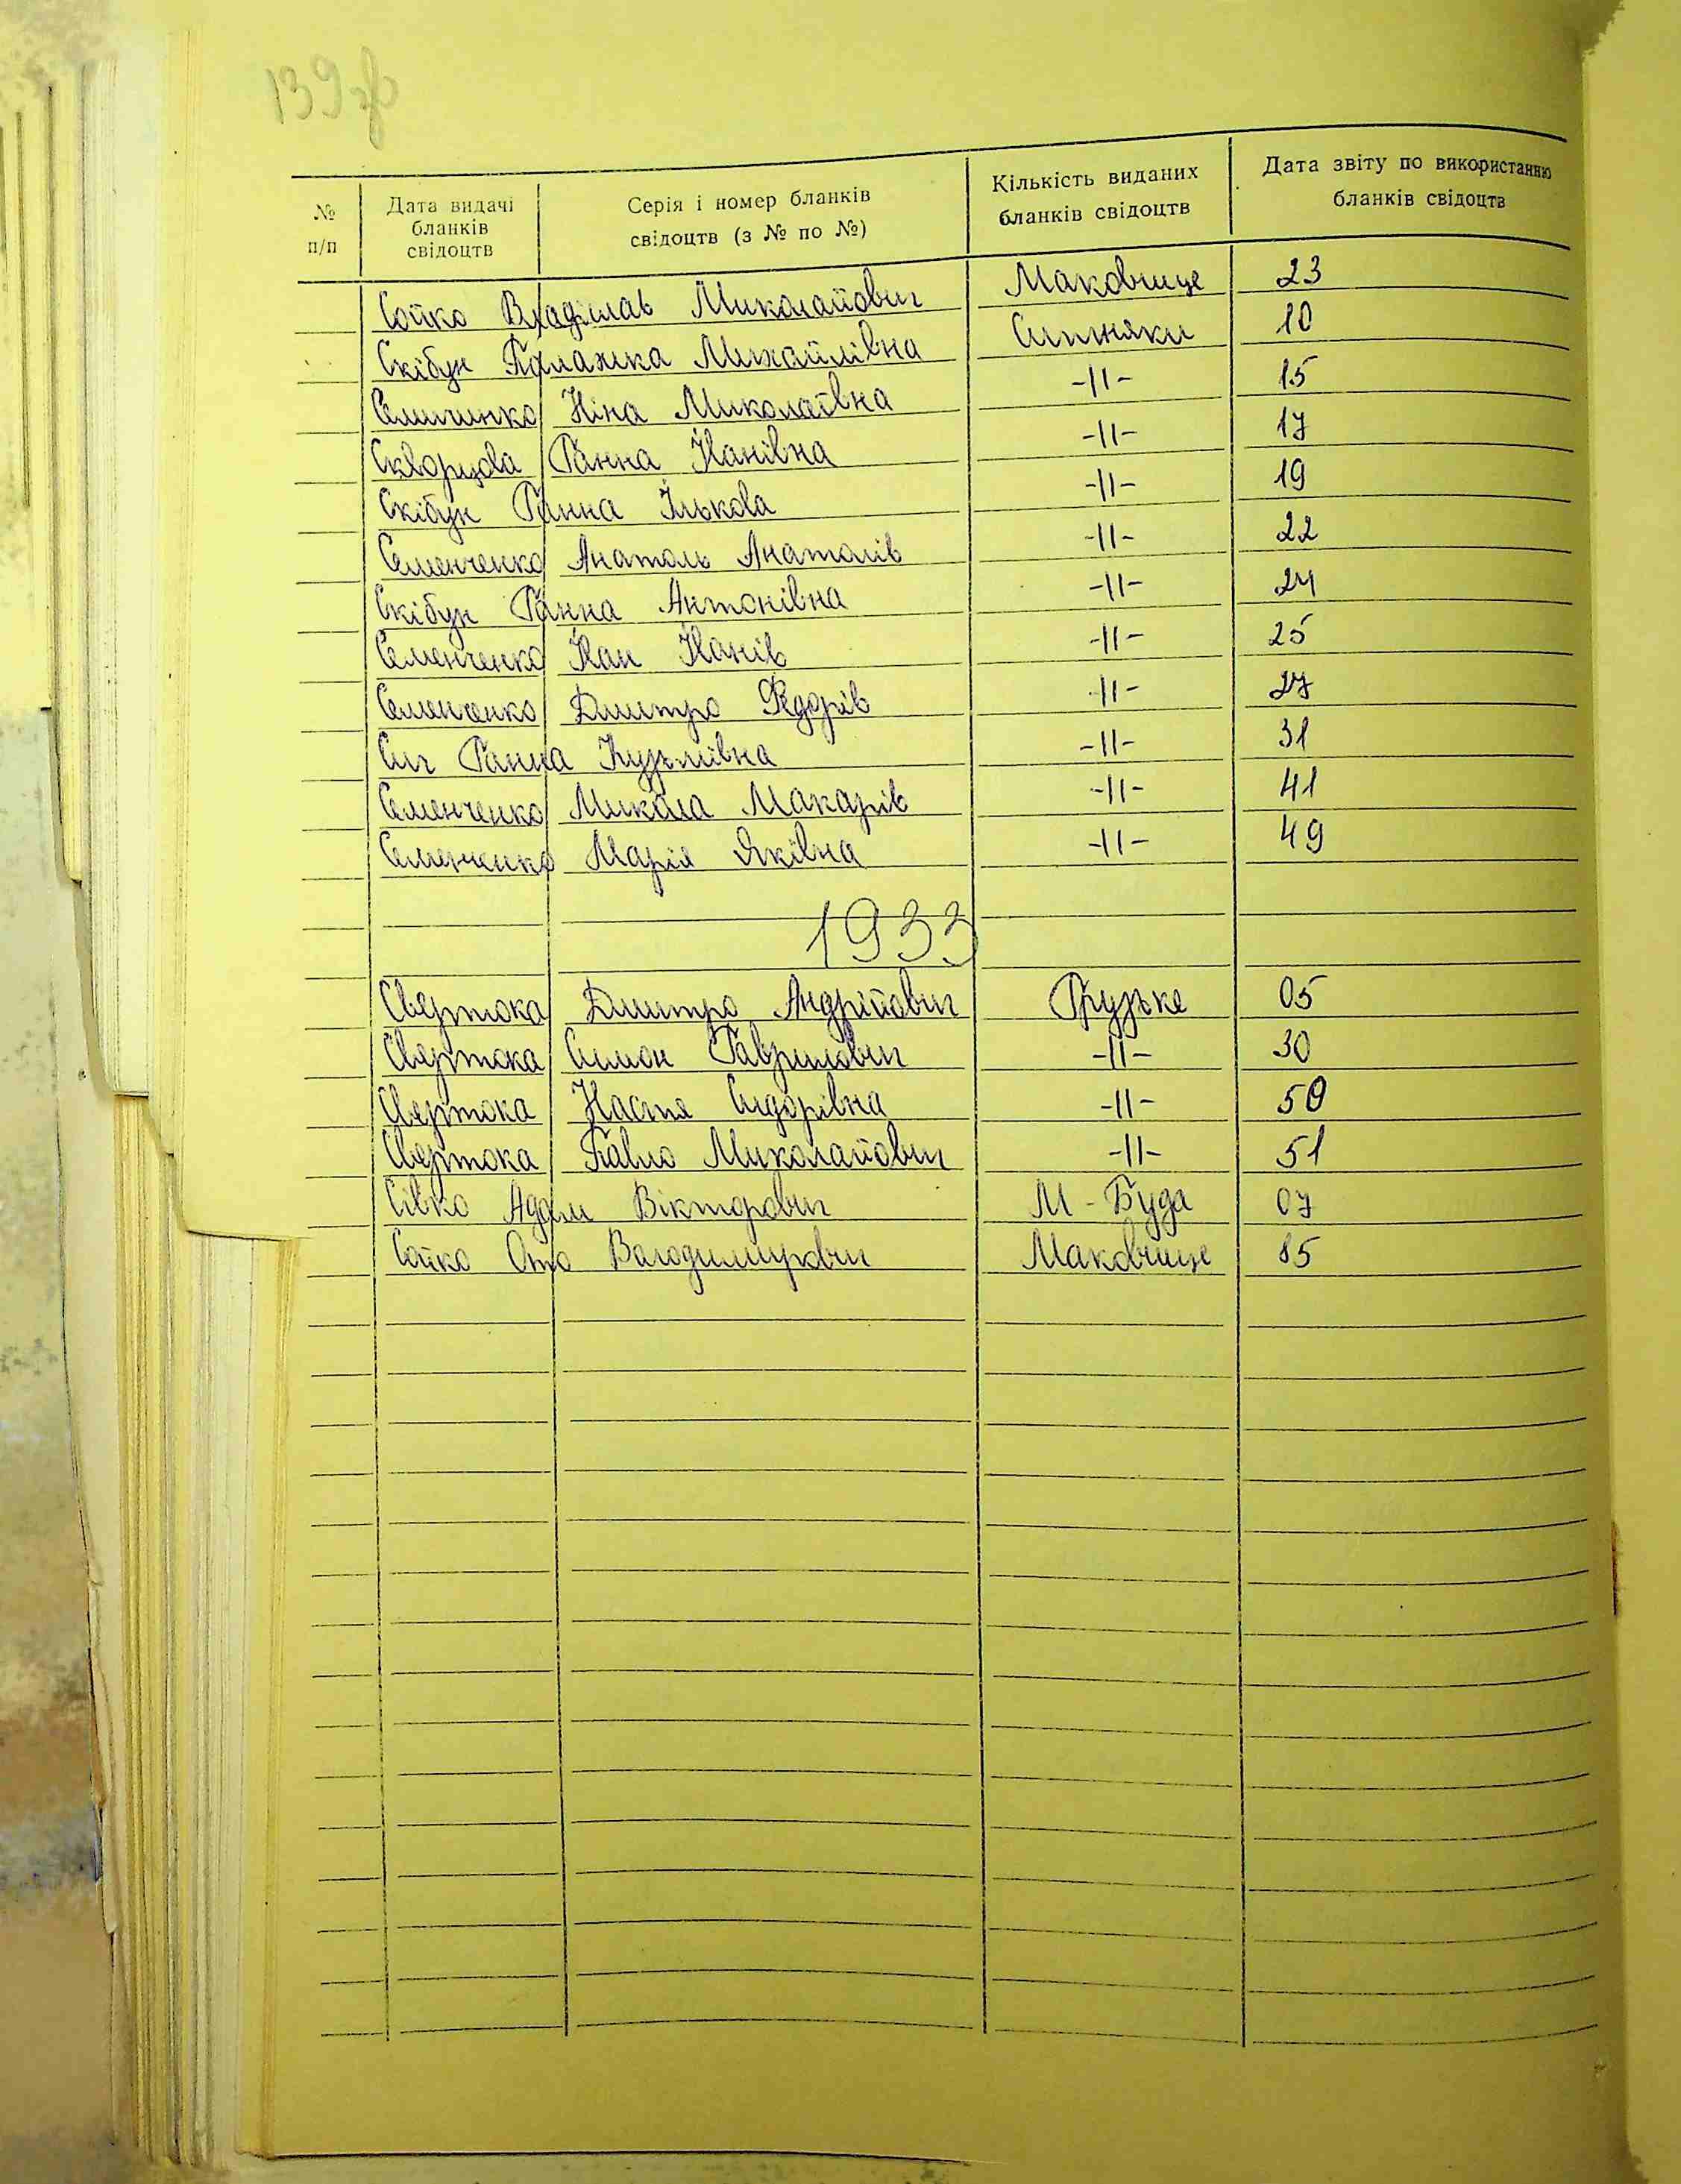 139зв
№ п/п | Дата видачі бланків свідоцтв | Серія і номер бланків свідоцтв (з № по №) | Кількість виданих бланків свідоцтв | Дата звіту по використанню бланків свідоцтв
Сойко Владіслав Миколайович Маковище 23
Скібун Палажка Михайлівна Ситняки 10
Ніна Миколаївна -11- 15
Скворцова Ганна Іванівна -11- 17
Скібун Ганна Ількова -11- 19
Семенченко Анатоль Анатолів -11- 22
Скібун Ганна Антонівна -11- 24
Семенченко Іван Іванів -11- 25
Семенченко Дмитро Федорів -11- 27
Сич Ганна Кузьмівна -11- 31
Семенченко Микола Макарів -11- 41
Семенченко Марія Яківна -11- 49
1933
Свєртока Дмитро Андрійович Грузьке 05
Свєртока Симон Гаврилович -11- 30
Свєртока Настя Сидорівна -11- 50
Свєртока Павло Миколайович -11- 51
Сівко Адам Вікторович М-Буда 07
Сойко Ото Володимирович Маковище 85